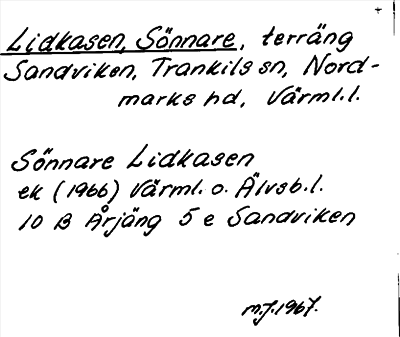 Lidkasen, Sönnare, terräng
Sandviken, Trankils sn, Nord-
marks hd, Värml.l.
Sönnare Lidkasen
ek (1966) Värml. o. Älvsb.l.
10 B Årjäng 5 e Sandviken
M.J.1967.